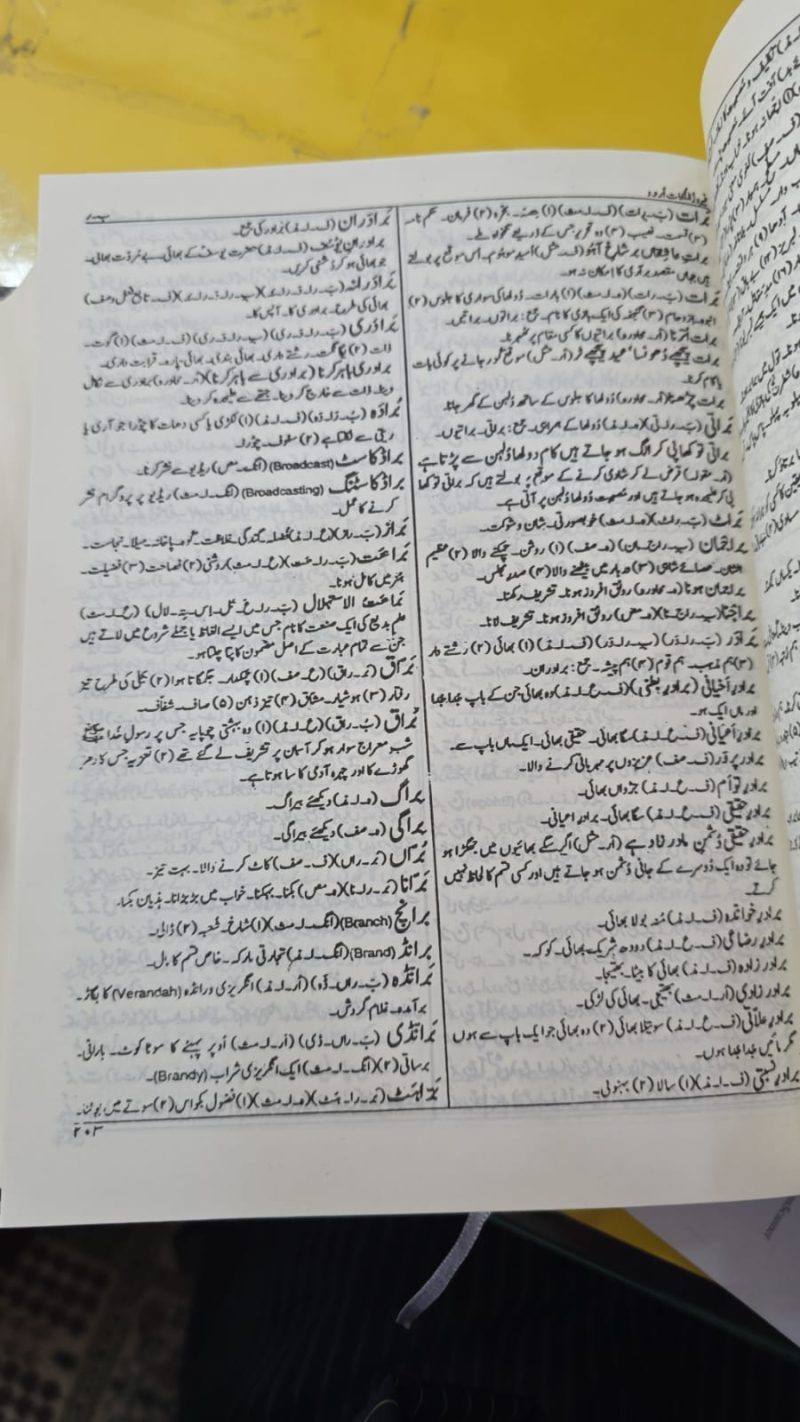 فیروز اللغات اردو
ب۔ر
بَرات (بَ۔رات)(ف۔ا۔مث)(۱) حصہ۔ بخرہ (۲) فرمان۔ حکم نامہ
(۳) قسمت۔ نصیب (۴) وہ تحریر جس کے ذریعے تنخواہ ملے۔
براتِ عاشقاں بر شاخِ آہو (ف۔مثل) اُمیدِ موہوم۔ اُس موقع پر بولتے
ہیں جہاں مقصد برآری کا امکان نہ ہو۔
بَرات (بَ۔رات)(ہ۔ا۔مث)(۱) بارات۔ دُولھا کی سواری کا جلوس (۲)
انبوہ۔ ازدحام (۳) گنجفہ کی ایک بازی کا نام۔ جمع: براتوں۔ براتیں۔
برات اُترنا (اُر۔محاورہ) براتیوں کا کسی مقام پر ٹھہرنا۔
برات پیچھے دھونسا عید پیچھے ٹر (اُر۔مثل) موقع گزر جانے پر کوئی بات
یا کام کرنا۔
برات چڑھنا (اُر۔محاورہ) دُولھا کا جلوس کے ساتھ دُلہن کے گھر جانا۔
بَراتی (بَ۔را۔تی)(ہ۔ا۔مذ) دُولھا کے ہمراہی۔ جمع: براتی۔ براتیوں۔
براتی تو کھا پی کر الگ ہو جاتے ہیں کام دولھا دُلہن سے پڑتا ہے
(اُر۔مقولہ) قرض لے کر شادی کرنے کے موقع پر بولتے ہیں کہ براتی تو کھا
پی کر علیحدہ ہو جاتے ہیں اور مصیبت دولھا دُلہن پر آتی ہے۔
بَراٹ (بَ۔راٹ)(ہ۔ا۔مث) خوبصورتی۔ شان و شوکت۔
براجمان (ب۔راج۔مان)(ہ۔صف)(۱) روشن۔ چمکنے والا (۲) عظیم
الشان۔ عصائے شاہی (۳) دربار میں بیٹھنے والا (۴) صدرِ مجلس۔
براجمان ہونا (ہ۔محاورہ) رونق افروز ہونا۔ تشریف رکھنا۔
براجنا (ب۔راج۔نا)(ہ۔مص) رونق افروز ہونا۔ تشریف لانا۔
بَرادَر (بَ۔را۔دَر)(ب۔را۔دَر)(ف۔ا۔مذ)(۱) بھائی (۲) رشتے دار
(۳) ہم مذہب۔ ہم قوم (۴) ہم پیشہ۔ جمع: برادران۔
برادرِ اَخیافی (برادرِ بطنی)(ف۔ع۔ا۔مذ) وہ بھائی جن کے باپ جدا جدا
اور ماں ایک ہو۔
برادرِ اَعیانی (ف۔ع۔ا۔مذ) سگا بھائی۔ حقیقی بھائی۔ ایک ماں باپ سے۔
برادر پرور (ف۔صف) عزیزوں پر مہربانی کرنے والا۔
برادرِ توأم (ف۔ع۔ا۔مذ) جڑواں بھائی۔
برادرِ حقیقی (ف۔ع۔ا۔مذ) سگا بھائی۔ برادرِ اعیانی۔
برادرِ حقیقی دُشمنِ مادر زاد ہے (اُر۔مثل) اگر سگے بھائیوں میں جھگڑا ہو
جائے تو وہ ایک دُوسرے کے جانی دُشمن ہو جاتے ہیں اور کسی قسم کا لحاظ نہیں
کرتے۔
برادرِ خواندہ (ف۔ا۔مذ) مُنہ بولا بھائی۔
برادرِ رضاعی (ف۔ع۔ا۔مذ) دودھ شریک بھائی۔ کوکہ۔
برادر زادہ (ف۔ا۔مذ) بھائی کا بیٹا۔ بھتیجا۔
برادر زادی (اُر۔ا۔مث) بھتیجی۔ بھائی کی لڑکی۔
برادرِ علّاتی (ف۔ع۔ا۔مذ) سوتیلا بھائی (۲) وہ بھائی جو ایک باپ سے ہوں
مگر مائیں جدا جدا ہوں۔
برادرِ نسبتی (ف۔ا۔مذ)(۱) سالا (۲) بہنوئی۔
بَرادَران (ف۔ا۔مذ) برادر کی جمع۔
برادرانِ یُوسف (ف۔ا۔مذ) حضرت یوسف کے بھائی۔ بے مُروّت بھائی۔
جو بھائی ہو کر دُشمنی کریں۔
بھائی کی طرح۔ برادری کا۔ آپس کا۔
بَرادَری (بَ۔را۔دَ۔ری)(ب۔را۔دَ۔ری)(ف۔ا۔مث)(۱) گوت۔
ذات (۲) یگانگت۔ رشتے داری۔ بھائی بندی۔ بھائی چارہ۔ قرابت داری۔
برادری باہر کرنا (برادری سے باہر کرنا)(اُر۔محاورہ) برادری سے نکال
دینا۔ ذات سے خارج کر دینا۔ جتھے سے علیحدہ کر دینا۔
بُرادَہ (بُ۔را۔دَہ)(ف۔ا۔مذ)(۱) لکڑی یا کسی دھات کا چُورا جو آری یا
ریتی سے نکلتا ہے (۲) سفوف۔ چُورا۔
براڈکاسٹ (Broadcast)(انگ۔مص) ریڈیو سے نشر کرنا۔
براڈکاسٹنگ (Broadcasting)(انگ۔ا۔مث) ریڈیو پر پروگرام نشر
کرنے کا عمل۔
بَراز (بَ۔راز)(ع۔ا۔مذ) فضلہ۔ گندگی۔ غلاظت۔ گوہ۔ پاخانہ۔ میلا۔ نجاست۔
بَراعت (بَ۔را۔عَت)(ع۔ا۔مث) روشنی (۲) فصاحت (۳) فضیلت۔
ہنر میں کامل ہونا۔
بَراعتُ الاستہلال (بَ۔را۔عَ۔تُل۔اِس۔تِہ۔لال)(ع۔ا۔مث)
علمِ بدیع کی ایک صنعت کا نام جس میں ایسے الفاظ یا جملے شروع میں لاتے ہیں
جن سے تمام عبارت کے اصل مضمون کا پتا چلتا ہو۔
بَرّاق (بَر۔راق)(ع۔صف)(۱) چمکدار۔ جگمگاتا ہوا (۲) بجلی کی طرح تیز
رفتار (۳) ہوشیار۔ مشّاق (۴) تیز ذہن (۵) صاف۔ شفّاف۔
بُراق (بُ۔راق)(ع۔ا۔مذ)(۱) وہ بہشتی چوپایہ جس پر رسولِ خدا ﷺ
شبِ معراج سوار ہو کر آسمان پر تشریف لے گئے تھے (۲) تعزیہ جس کا دھڑ
گھوڑے کا اور چہرہ آدمی کا سا ہوتا ہے۔
براگ (ہ۔ا۔مذ) دیکھئے بیراگ۔
براگی (ہ۔صف) دیکھئے بیراگی۔
بُرّاں (بُر۔راں)(ف۔صف) کاٹ کرنے والا۔ بہت تیز۔
بَرّانا (بَر۔را۔نا)(ہ۔مص) بکنا۔ بہکنا۔ خواب میں بڑبڑانا۔ ہذیان بکنا۔
برانچ (Branch)(انگ۔ا۔مث)(۱) شاخ۔ شعبہ (۲) ڈالی۔
برانڈ (Brand)(انگ۔ا۔مذ) تجارتی مارکہ۔ خاص قسم کا مال۔
بَرانڈہ (بَ۔راں۔ڈَہ)(اُر۔ا۔مذ) انگریزی ورانڈہ (Verandah) کا بگاڑ۔
برآمدہ۔ غلام گردش۔
بَرانڈی (بَ۔راں۔ڈی)(اُر۔ا۔مث) اُوپر پہننے کا موٹا کوٹ۔ بارانی۔
برساتی (۲)(انگ۔ا۔مث) ایک انگریزی شراب (Brandy)۔
بَرّاہَٹ (بَر۔را۔ہَٹ)(ہ۔ا۔مث)(۱) فضول بکواس (۲) سوتے میں بولنا۔
۲۰۳